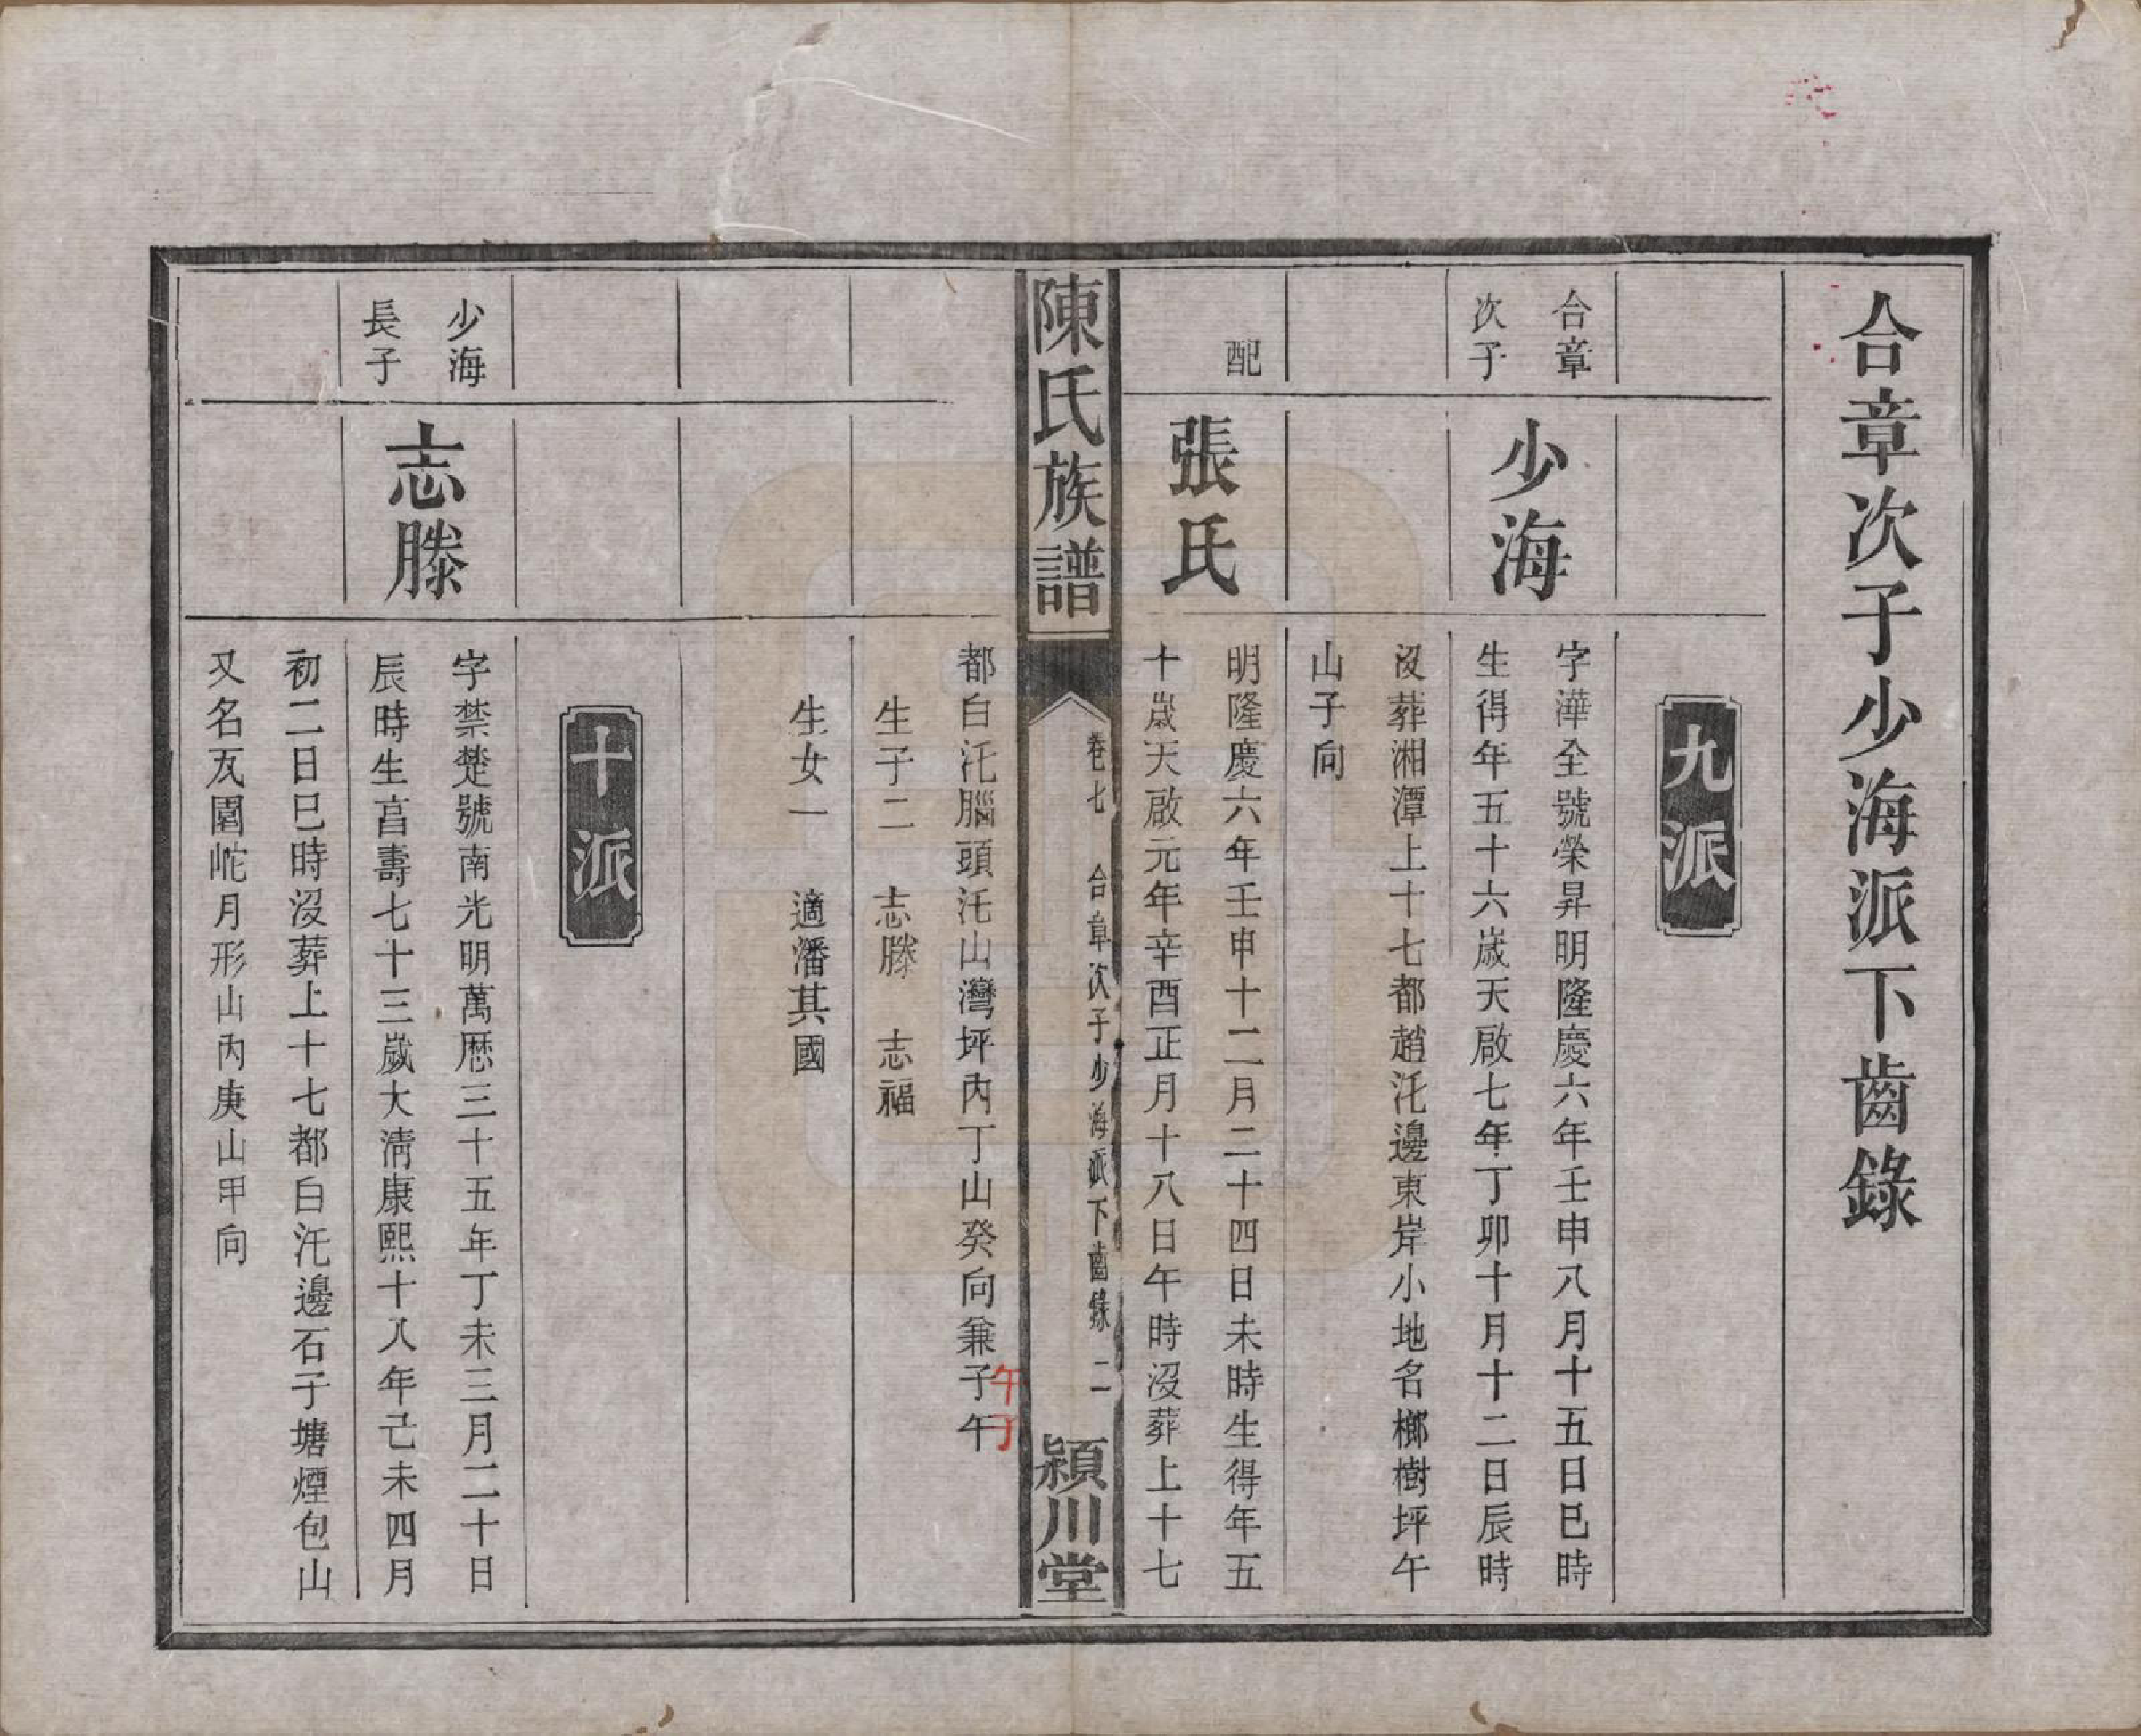 合章次子少海派下齒錄
九派
合章
次子
少海
字澕全號榮昇明隆慶六年壬申八月十五日巳時
生得年五十六歲天啟七年丁卯十月十二日辰時
沒葬湘潭上十七都趙汑邊東岸小地名榔樹坪午
山子向
配
張氏
明隆慶六年壬申十二月二十四日未時生得年五
十歲天啟元年辛酉正月十八日午時沒葬上十七
陳氏族譜
卷七
合章次子少海派下齒錄
二
潁川堂
都白汑腦頭汑山灣坪內丁山癸向兼子午
午丁
生子二 志滕 志福
生女一 適潘其國
十派
少海
長子
志滕
字禁楚號南光明萬歷三十五年丁未三月二十日
辰時生亯壽七十三歲大淸康熙十八年己未四月
初二日巳時沒葬上十七都白汑邊石子塘煙包山
又名瓦園岮月形山內庚山甲向